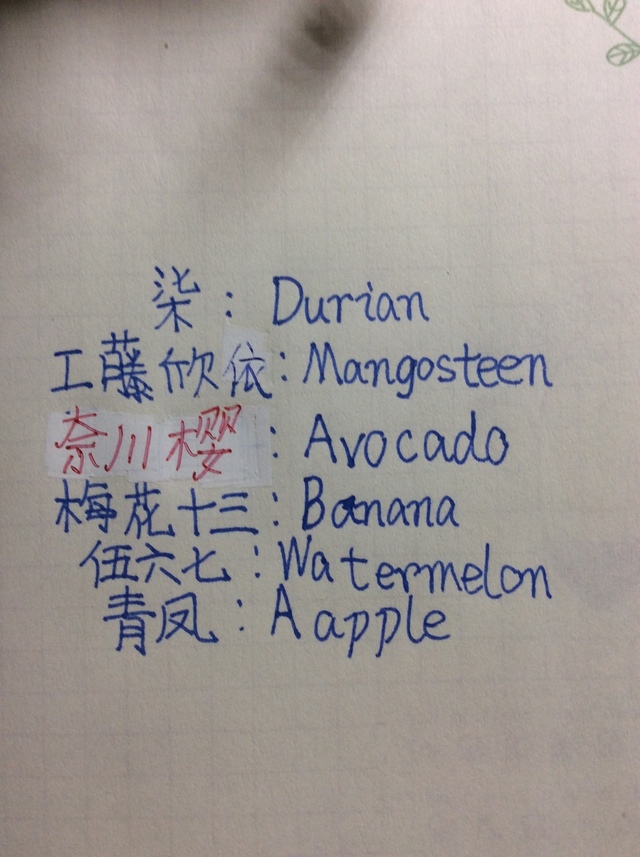 柒：Durian
工藤欣依：Mangosteen
奈川樱：Avocado
梅花十三：Banana
伍六七：Watermelon
青凤：Aapple